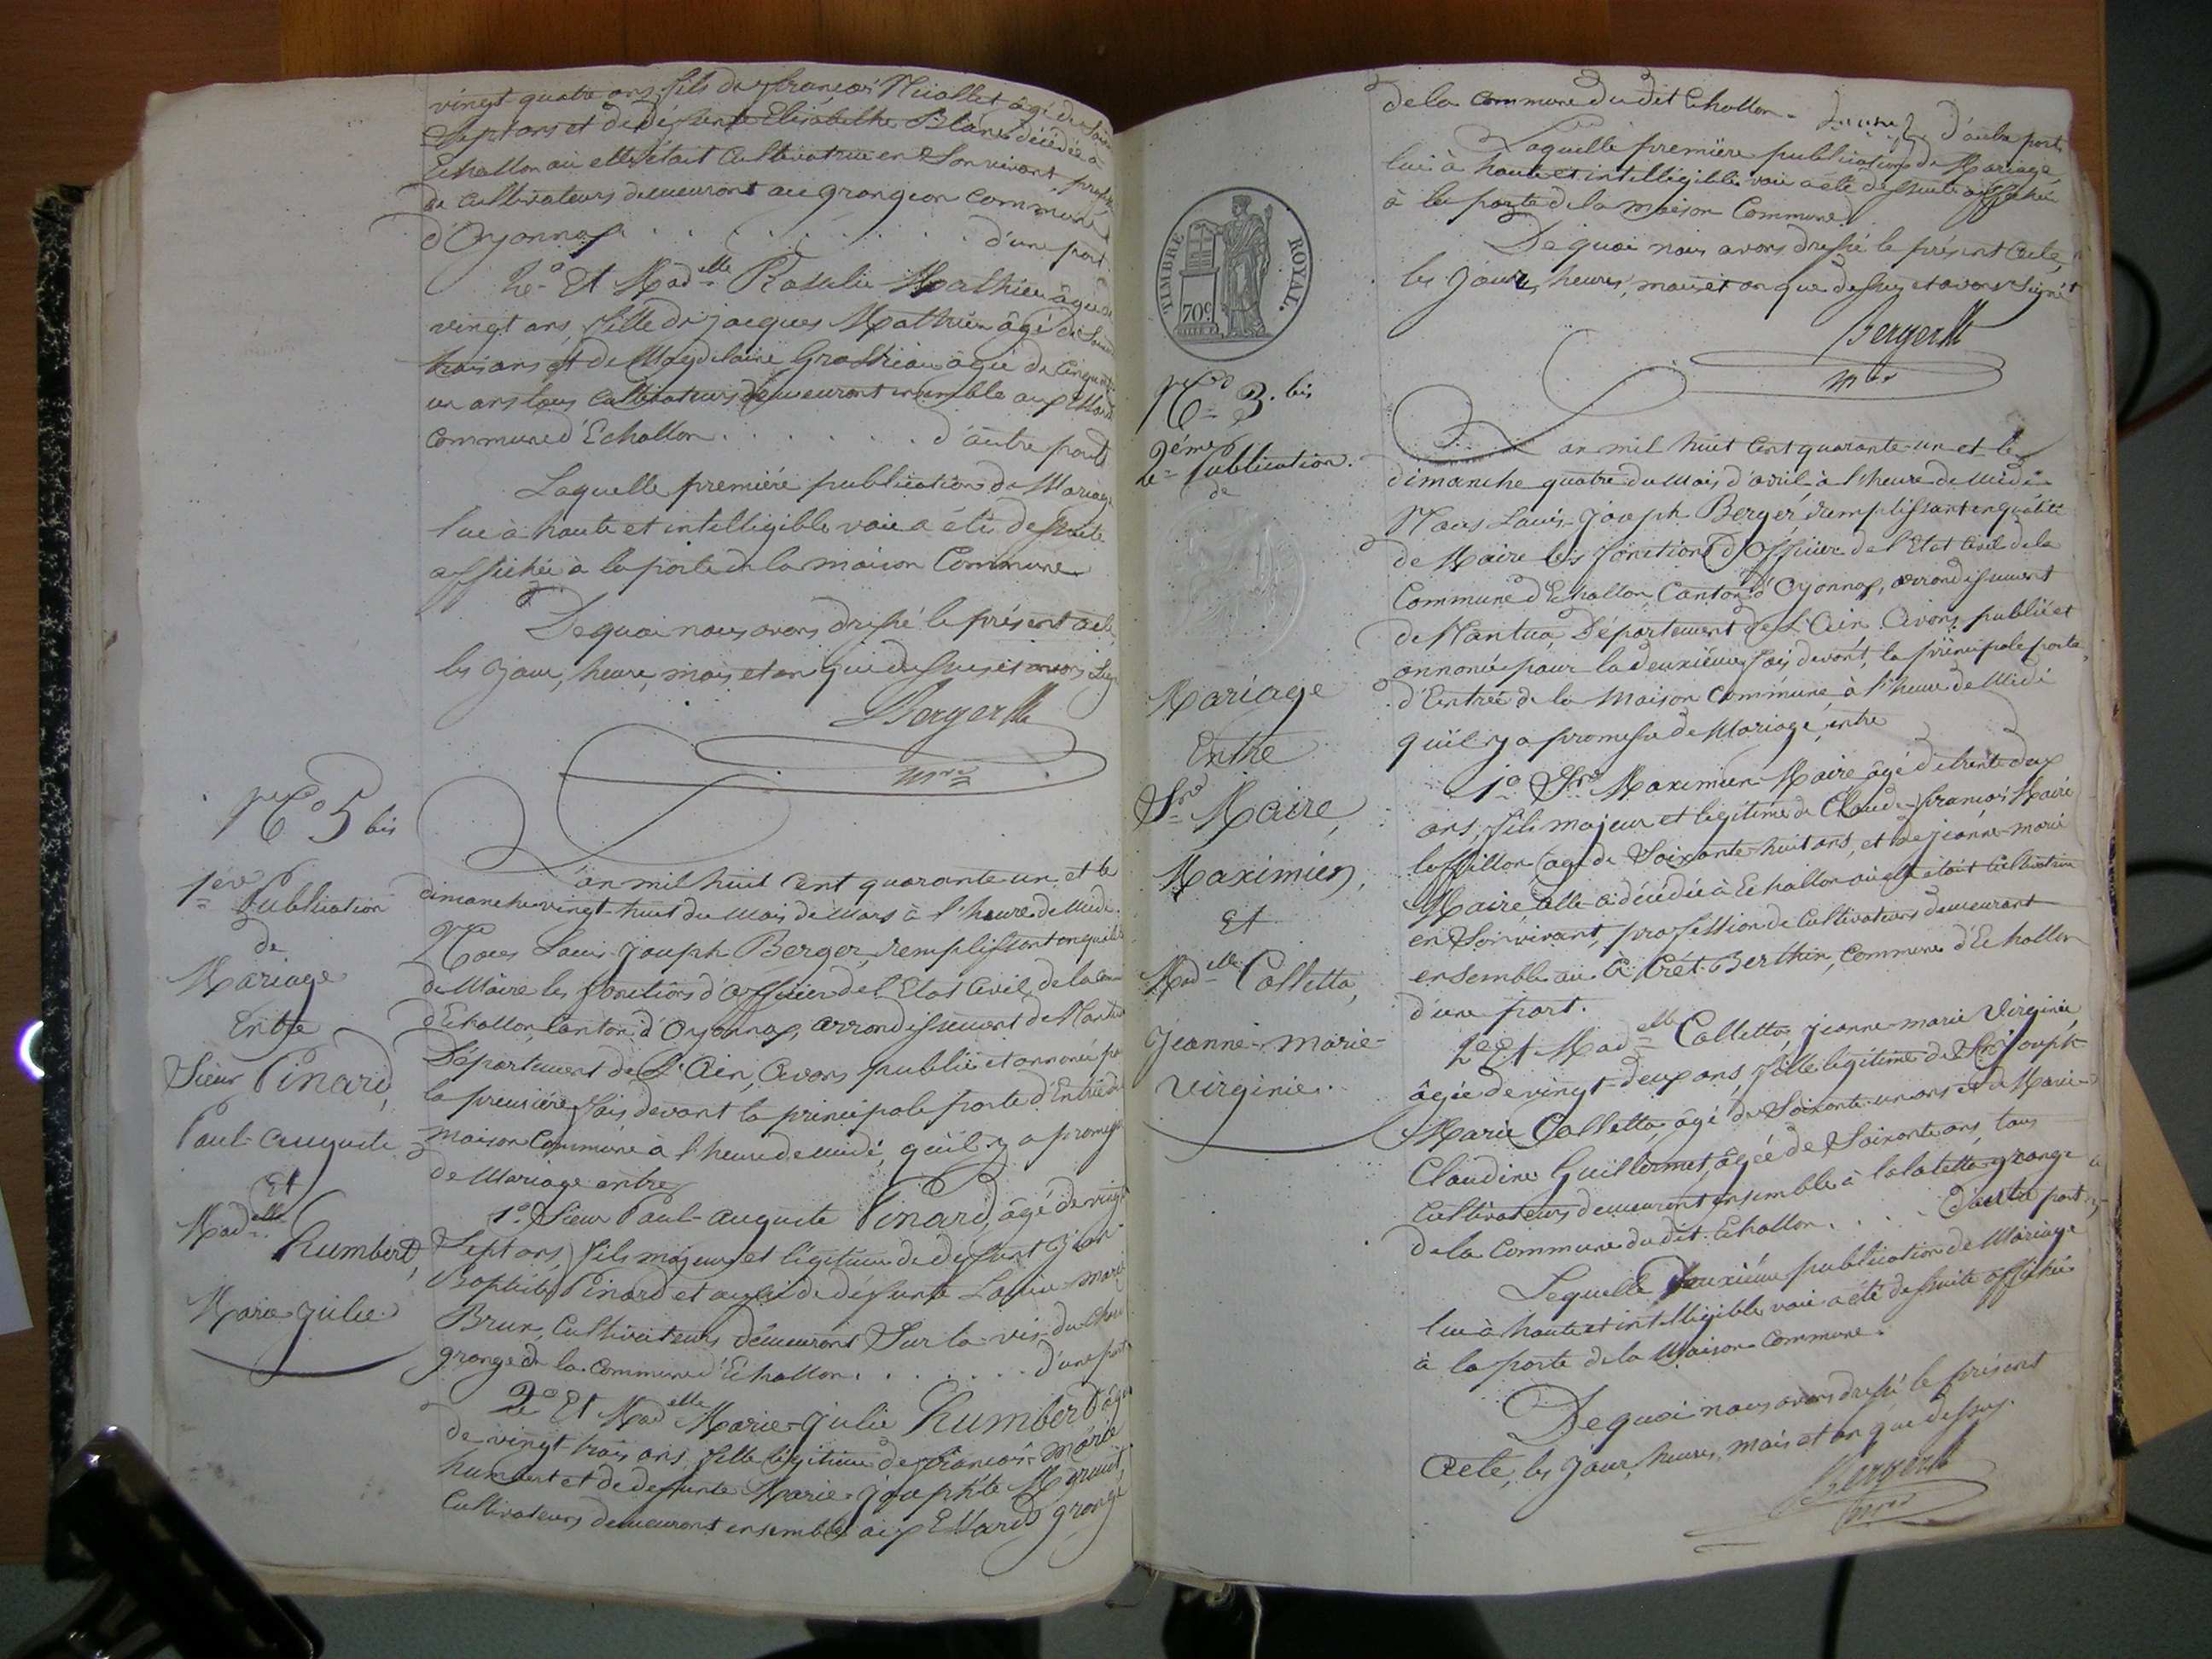 vingt quatre ans, fils de françois Nicollet âgé de
Sept ans et de défunte Elisabethe Blanc décédée à
Echallon où elle était Cultivatrice en Son vivant,
de cultivateurs demeurant au grangeon Commune
d'Oyonnax . . . . . . . . . d'une part
2e Et Madelle Rosalie Mathieu âgée de
vingt ans, fille de jacques Mathieu âgé de
trois ans et de Magdelaine âgée de Cinquante
un ans tous Cultivateurs demeurant ensemble aux
Commune d'Echallon . . . . . . . d'autre part
Laquelle première publication de Mariage
lue à haute et intelligible voix a été de suite
affichée à la porte de la maison Commune
De quoi nous avons dressé le présent acte,
les jour, heure, mois et an que dessus et avons
Berger
mre
No 5 bis
1ere Publication
de
Mariage
Entre
Sieur Pinard,
Paul-auguste
Et
Madelle
humbert,
Marie julie
L'an mil huit Cent quarante-un et le
dimanche vingt-huit du Mois de Mars à l'heure de Midi.
Nous Louis-joseph Berger, remplissant en qualité
de Maire les fonctions d'officier de l'Etat Civil de la
d'Echallon, Canton d'Oyonnax, arrondissement de Nantua
Département de L'Ain, Avons publié et annoncé
la première fois devant la principale porte d'Entrée de
maison Commune à l'heure de midi, qu'il y a promesse
de Mariage entre
1o Sieur Paul-auguste Pinard, âgé de vingt
Sept ans, fils majeur et légitime de défunt jean
Baptiste Pinard et aussi de défunte Louise marie
Brun, Cultivateurs demeurant Sur la-vie-du
grange de la Commune d'Echallon . . . . . . d'une part
2e Et Madelle Marie-julie humbert âgée
de vingt-trois ans, fille légitime de françois-marie
humbert et de défunte Marie-josephte
Cultivateurs demeurant ensemble aux Essards grange
TIMBRE ROYAL.
70c
No 3. bis
2eme Publication.
de
Mariage
Entre
Sr Maire,
Maximien,
Et
Madelle Colletta,
Jeanne-marie-
Virginie.
de la Commune du dit Echallon. d'autre part
Laquelle première publication de Mariage,
lue à haute et intelligible voix a été de suite affichée
à la porte de la maison Commune.
De quoi nous avons dressé le présent acte,
les jour, heures, mois et an que dessus et avons Signé
Berger
mre
L'an mil huit Cent quarante-un et le
dimanche quatre du Mois d'avril à l'heure de Midi
Nous Louis-joseph Berger, remplissant en qualité
de Maire les fonctions d'officier de l'Etat Civil de la
Commune d'Echallon, Canton d'Oyonnax, arrondissement
de Nantua, Département de L'Ain Avons publié et
annoncé pour la deuxième fois devant, la principale porte
d'Entrée de la Maison Commune, à l'heure de Midi
qu'il y a promesse de Mariage, entre
1o Sr Maximien Maire âgé de trente deux
ans, fils majeur et légitime de Claude-françois Maire
âgé de Soixante-huit ans, et de jeanne-marie
Maire celle-ci décédée à Echallon où elle était Cultivatrice
en Son vivant, profession de Cultivateurs demeurant
ensemble au Crét-Berthin, Commune d'Echallon
d'une part.
2e Et Madelle Colletta, jeanne-marie Virginie,
âgée de vingt-deux ans, fille légitime de Sr joseph-
Marie Colletta, âgé de Soixante-un ans et de Marie-
Claudine Guillermet, âgée de Soixante ans, tous
Cultivateurs demeurant ensemble à grange
de la Commune du dit Echallon . . . . d'autre part
Lequelle deuxième publication de Mariage
lue à haute et intelligible voix a été de suite affichée
à la porte de la Maison Commune.
De quoi nous avons dressé le présent
Acte, les jour, heures, mois et an que dessus.
Berger
mre